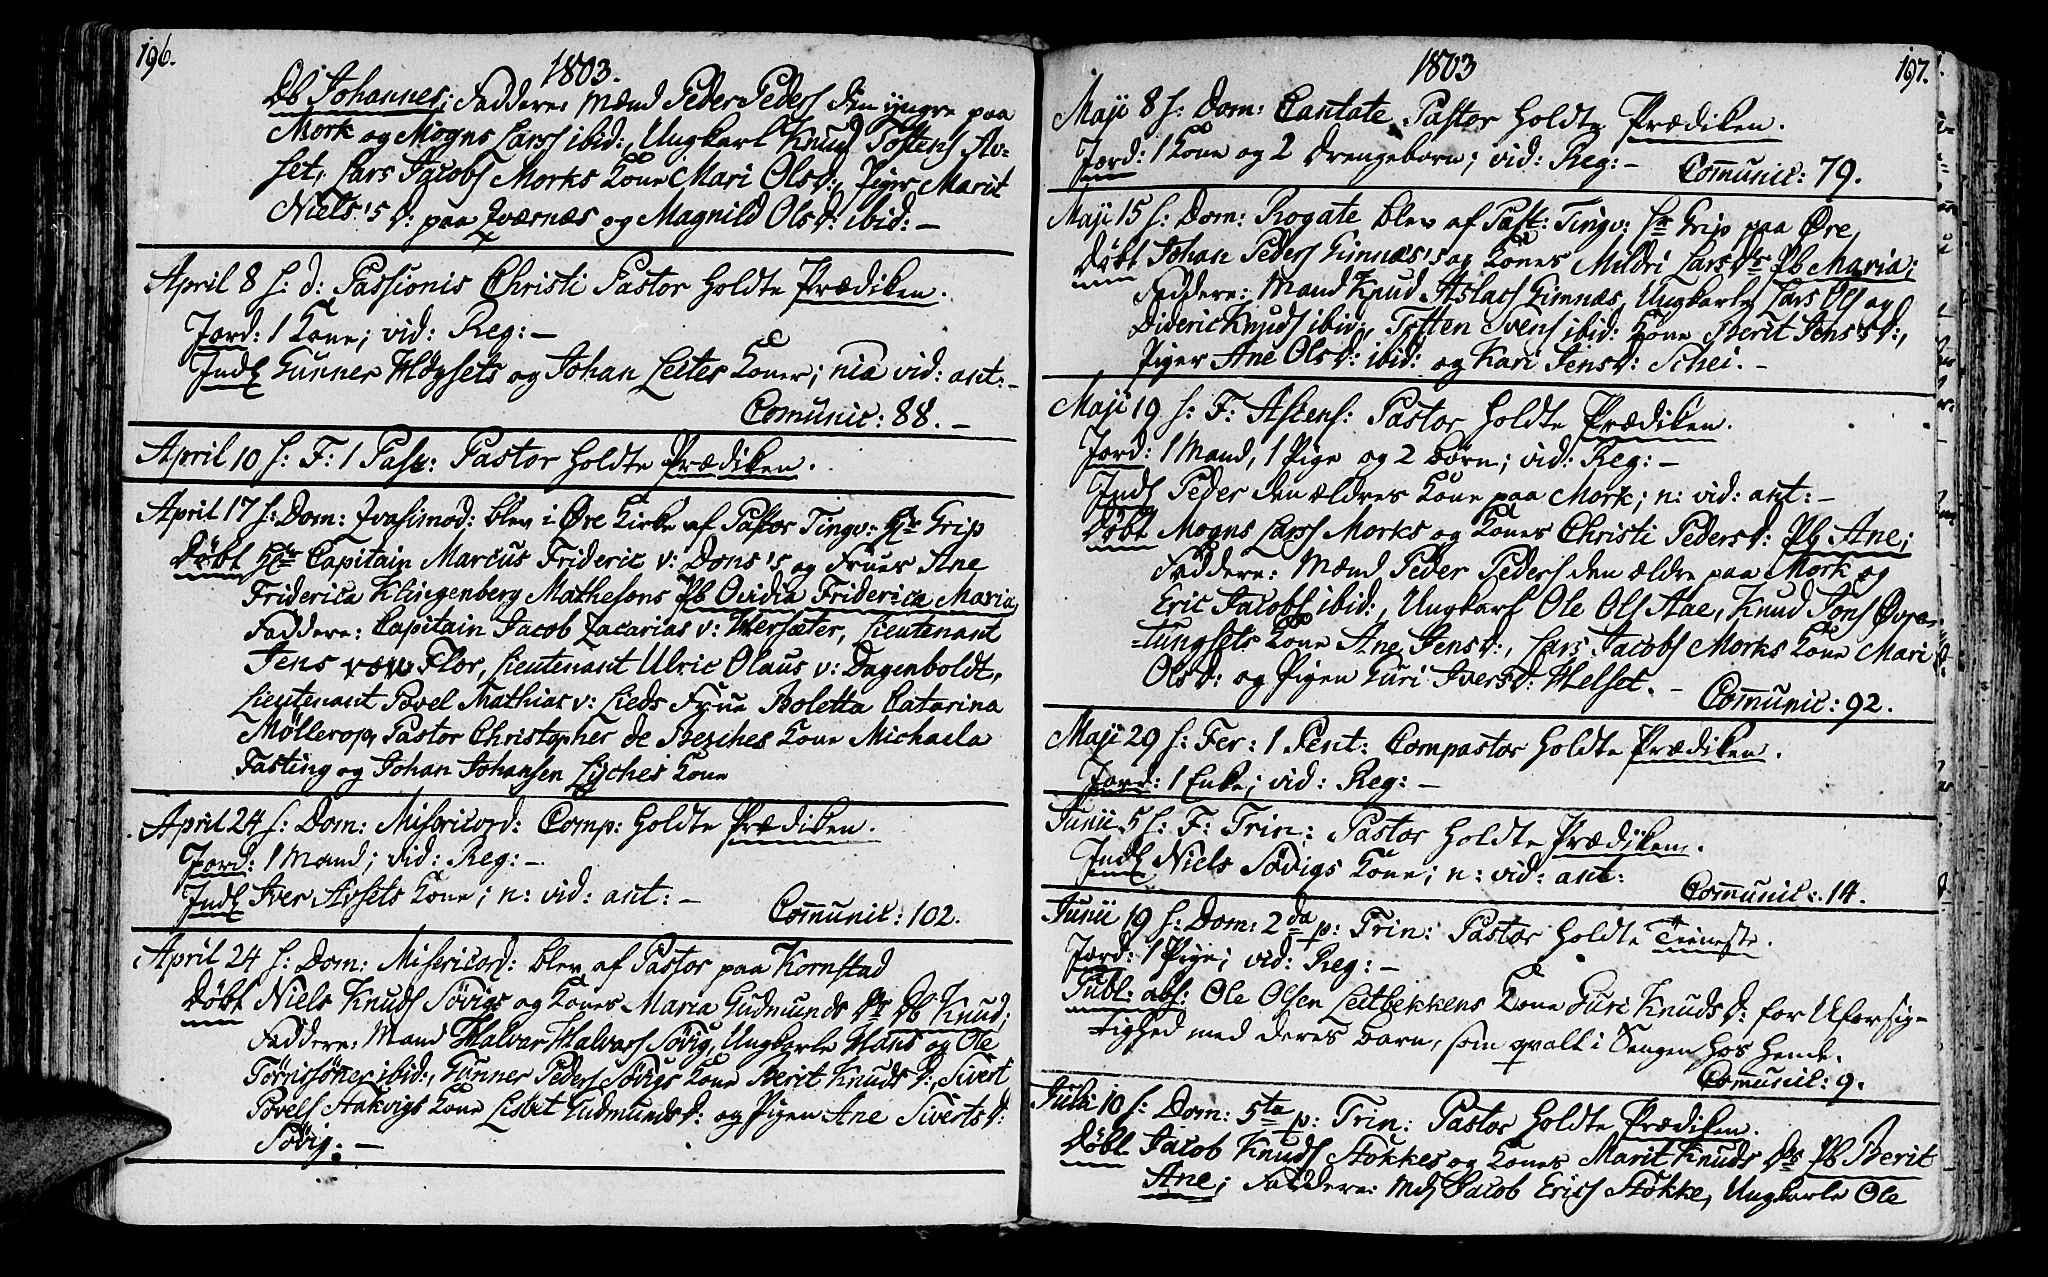 196.
1803.
Db Johannes; Faddere: Mænd Peder Peders den yngre paa
Mork og Mogns Larss ibid:, Ungkarl Knud Tostens Av-
set, Lars Jacobs Morks Kone Mari Olsd:, Piger Marit
Niels's d: paa Qværnæs og Magnild Olsd: ibid: –
April 8 s: d: Passionis Christi Pastor holdte Prædiken.
Jord: 1 Kone; vid: Reg: –
Indl Gunner Høysets og Johan Leites Koner; nia vid: ant: –
Comunic: 88. –
April 10 s: F: 1 Pasc: Pastor holdte Prædiken.
April 17 s: Dom: Qvasimod: blev i Øre Kirke af Pastor Tingv: Hr Grip
Døbt Hr Capitain Marcus Frideric v: Dons's og Frues Ane
Friderica Klingenberg Mathesons Pb Ovidia Friderica Maria
Faddere: Capitain Jacob Zacarias v: Hersæter, Lieutenant
Jens von Flor, Lieutenant Ulric Olaus v: Dagenboldt,
Lieutenant Povel Mathias v: Lieds Frue Boletta Catarina
Møllerop, Pastor Christopher de Besches Kone Michaela
Fasting og Johan Johansen Lyches Kone
April 24 s: Dom: Misericord: Comp: holdte Prædiken.
Jord: 1 Mand; vid: Reg: –
Indl Iver Avsets Kone; n: vid: ant: –
Communic: 102.
April 24 s: Dom: Misericord: blev af Pastor paa Kornstad
Døbt Niels Knuds Søvigs og Kones Maria Gudmunds Ds Db Knud;
Faddere: Mand Halvar Halvars Søvig, Ungkarle Hans og Ole
Tørrissøner ibid:, Gunner Peders Søvigs Kone Berit Knuds D:, Sivert
Povels Stakvigs Kone Lisbet Gudmundsd: og Pigen Ane Siverts d:
Søvig. –
1803
197.
Maji 8 s: Dom: Cantate Pastor holdte Prædiken.
Jord: 1 Kone og 2 drengebørn; vid: Reg: –
Communic: 79.
Maji 15 s: Dom: Rogate blev af Past: Tingv: Hr Grip paa Øre,
Døbt Johan Peders Gimnæs's og Kones Mildri Lars Ds Pb Maria;
Faddere: Mand Knud Aslacs Gimnæs, Ungkarle Lars Ols og
Dideric Knuds ibid, Tosten Svens ibid: Kone Berit Jens'sd:,
Piger Ane Olsd: ibid: og Kari Jensd: Schei. –
Maji 19 s: F: Ascens: Pastor holdte Prædiken.
Jord: 1 Mand, 1 Pige og 2 Børn; vid: Reg: –
Indl Peder den ældres Kone paa Mork; n: vid: ant: –
Døbt Mogns Larss Morks og Kones Christi Pedersd: Pb Ane;
Faddere: Mænd Peder Peders den ældre paa Mork og
Eric Jacobs ibid:, Ungkarl Ole Ols Aae, Knud Jons Øvre-
tungsets Kone Ane Jensd:, Lars Jacobs Morks Kone Mari
Olsd: og Pigen Guri Iversd: Helset. –
Communic: 92.
Maji 29 s: Fer: 1 Pent: Compastor holdte Prædiken.
Jord: 1 Enke; vid: Reg: –
Junii 5 s: F: Trin: Pastor holdte Prædiken.
Indl Niels Søvigs Kone; n: vid: ant:
Communic: 14.
Junii 19 s: Dom: 2da p: Trin: Pastor holdte Tieneste.
Jord: 1 Pige; vid: Reg: –
Publ: abs: Ole Olsen Leitbekkens Kone Guri Knudsd: for Uforsig-
tighed med deres barn, som qvalt i Sengen hos hende.
Comunic: 9.
Julii 10 s: Dom: 5ta p: Trin: Pastor holdte Prædiken.
Døbt Jacob Knuds Stokkes og Kones Marit Knuds Ds Pb Berit
Ane; Faddere: Md Jacob Erics Stokke, Ungkarle Ole